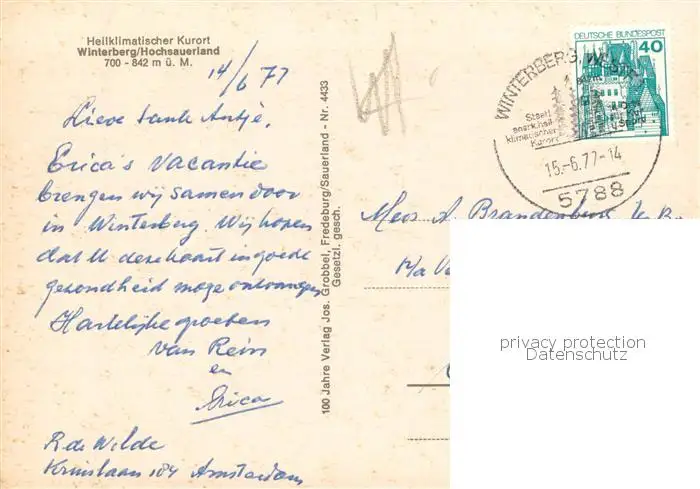 Heilklimatischer Kurort
Winterberg/Hochsauerland
700 - 842 m ü. M.
14/6 77
Lieve tante Antje,
Erica's vacantie
brengen wij samen door
in Winterberg. Wij hopen
dat U deze kaart in goede
gezondheid moge ontvangen
Hartelijke groeten
van Rein
en
Erica
R de Wilde
184 Amsterdam
100 Jahre Verlag Jos. Grobbel, Fredeburg/Sauerland - Nr. 4433
Gesetzl. gesch.
DEUTSCHE BUNDESPOST
40
WINTERBERG, WESTF
Staatl.
anerk. heil-
klimatischer
Kurort
15.-6.77-14
5788
Mevr A. Brandenburg
p/a
privacy protection
Datenschutz